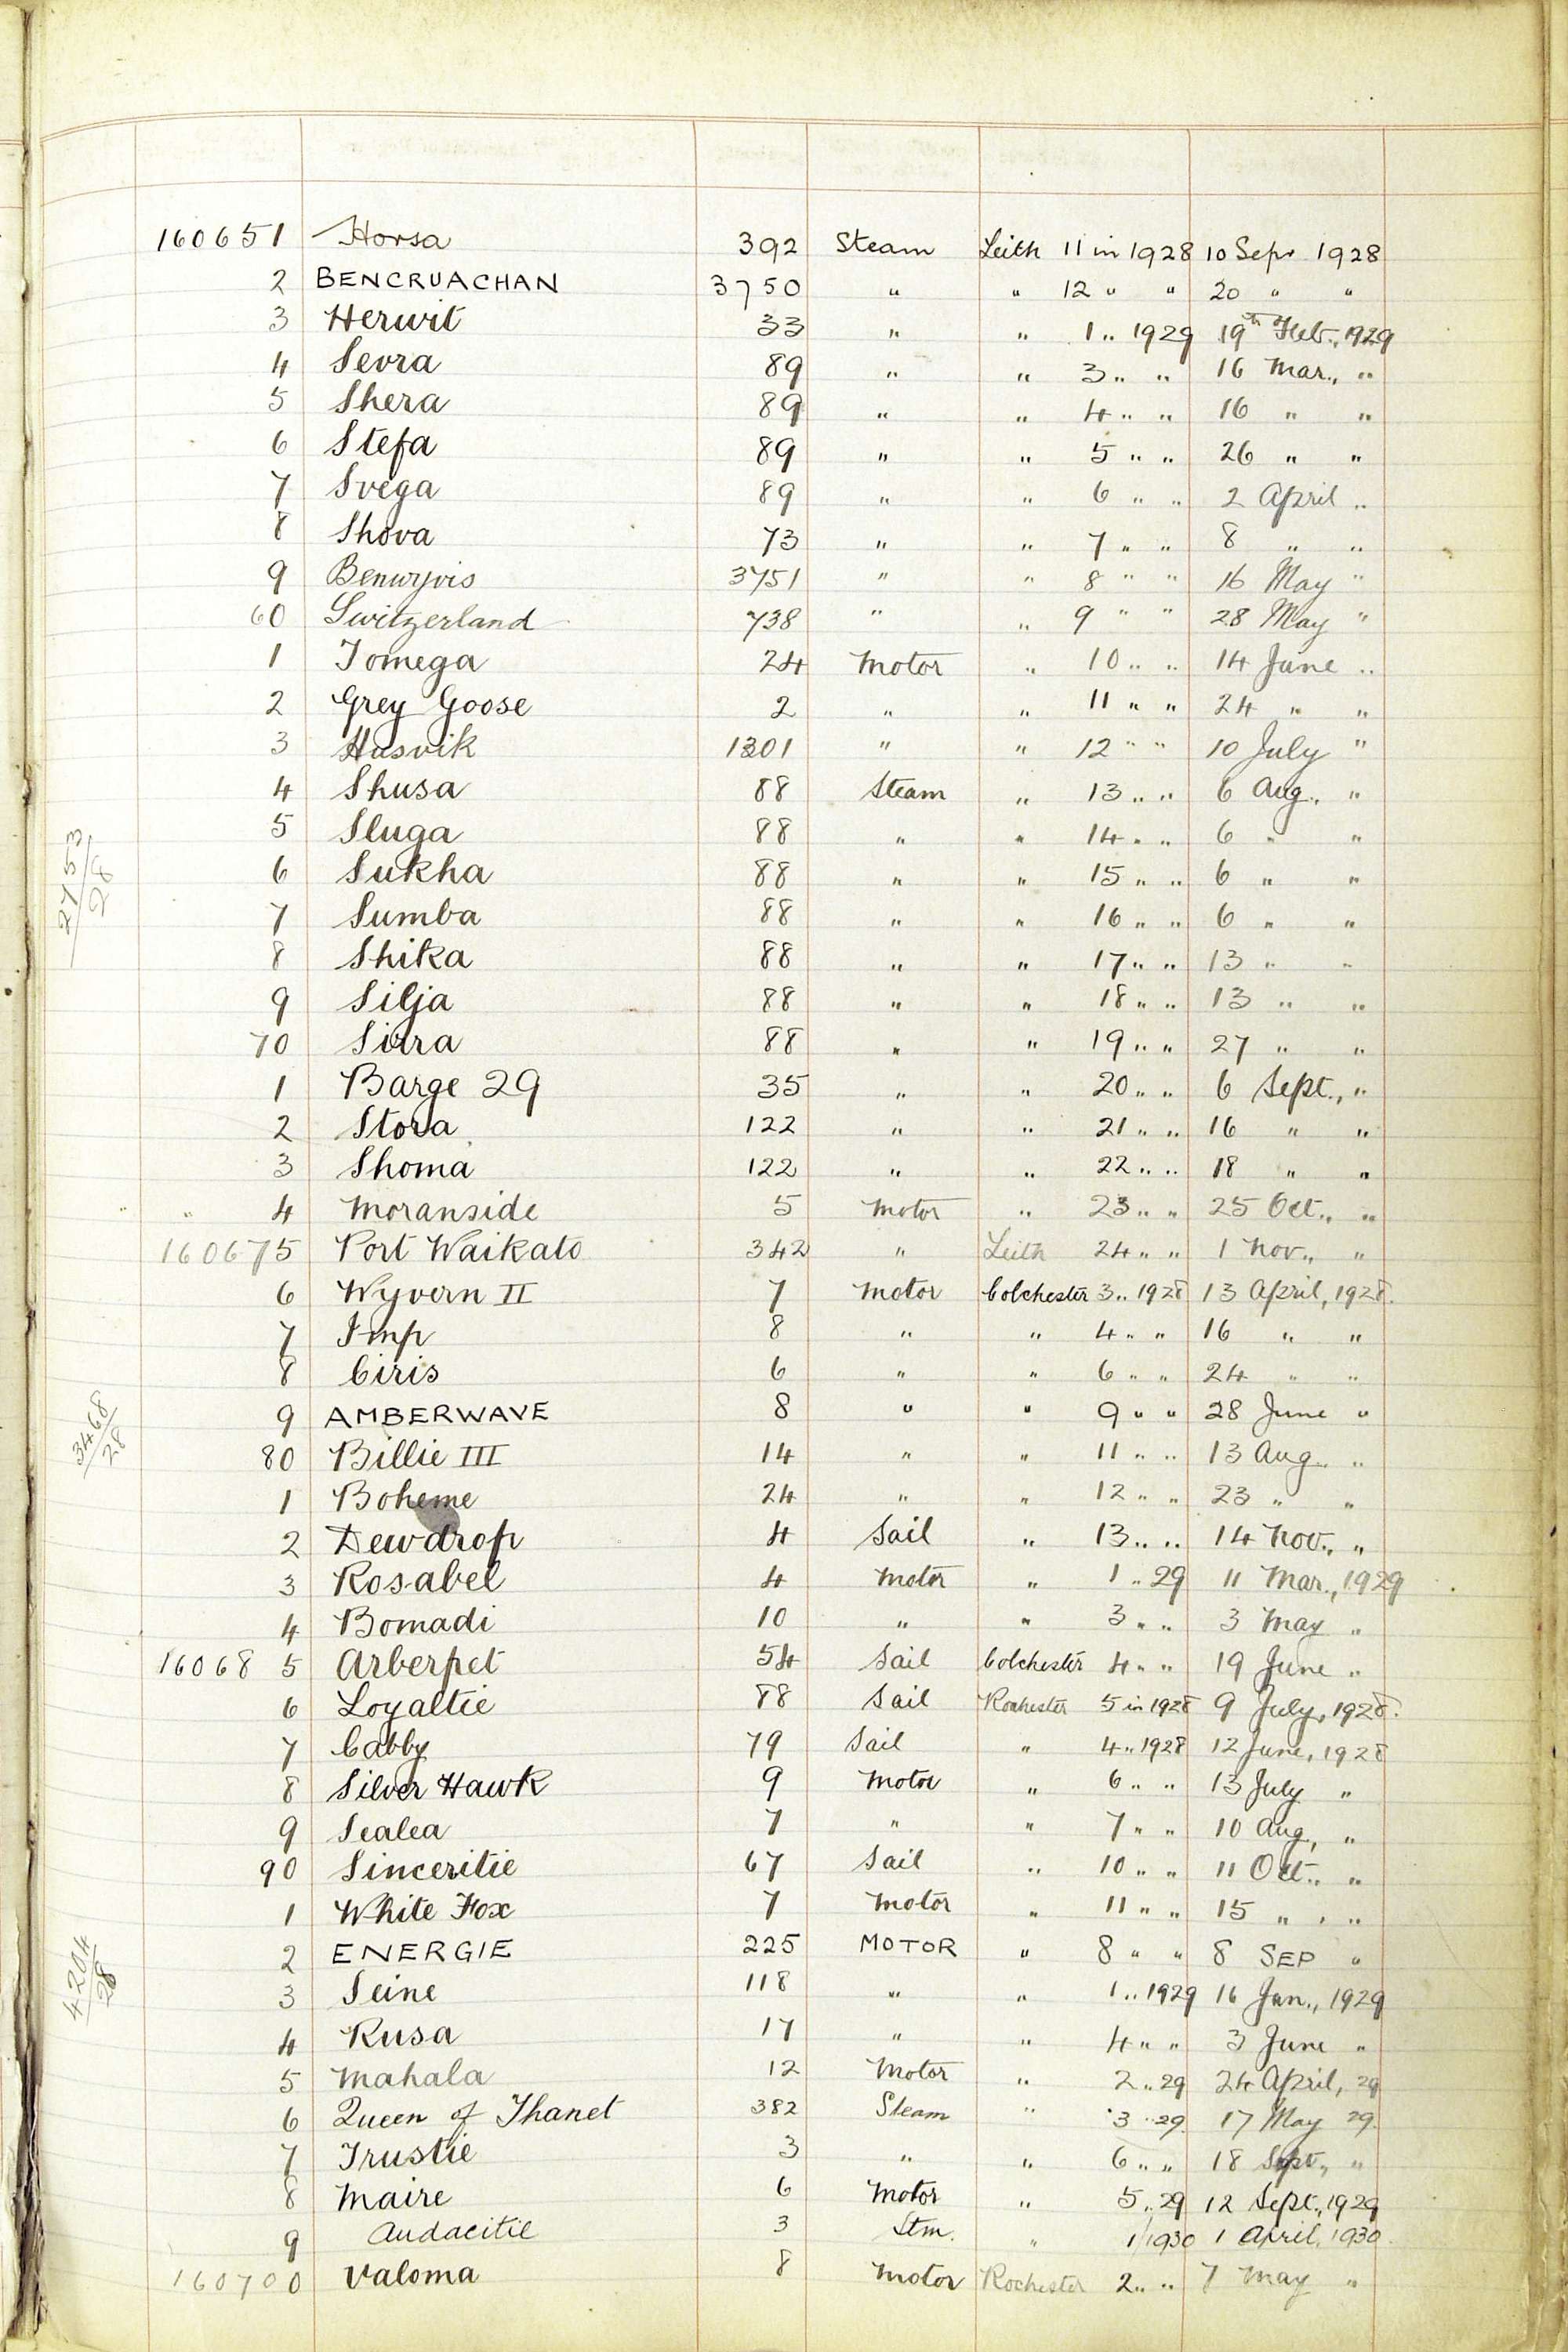 160651 Horsa 392 Steam Leith 11 in 1928 10 Sept 1928
2 BENCRUACHAN 3750 " " 12 " " 20 " "
3 Herwit 33 " " 1 " 1929 19th Feb., 1929
4 Sevra 89 " " 3 " " 16 Mar., "
5 Shera 89 " " 4 " " 16 " "
6 Stefa 89 " " 5 " " 26 " "
7 Svega 89 " " 6 " " 2 April "
8 Shova 73 " " 7 " " 8 " "
9 Benwyvis 3751 " " 8 " " 16 May "
60 Switzerland 738 " " 9 " " 28 May "
1 Tomega 24 Motor " 10 " " 14 June "
2 Grey Goose 2 " " 11 " " 24 " "
3 Husvik 1301 " " 12 " " 10 July "
4 Shusa 88 Steam " 13 " " 6 Aug., "
5 Sluga 88 " " 14 " " 6 " "
6 Sukha 88 " " 15 " " 6 " "
7 Sumba 88 " " 16 " " 6 " "
8 Shika 88 " " 17 " " 13 " "
9 Silja 88 " " 18 " " 13 " "
70 Sirra 88 " " 19 " " 27 " "
1 Barge 29 35 " " 20 " " 6 Sept., "
2 Stora 122 " " 21 " " 16 " "
3 Shoma 122 " " 22 " " 18 " "
" " 4 Moranside 5 Motor " 23 " " 25 Oct., "
160675 Port Waikato 342 " Leith 24 " " 1 Nov., "
6 Wyvern II 7 Motor Colchester 3 " 1928 13 April, 1928.
7 Imp 8 " " 4 " " 16 " "
8 Ciris 6 " " 6 " " 24 " "
9 AMBERWAVE 8 " " 9 " " 28 June "
80 Billie III 14 " " 11 " " 13 Aug. "
1 Boheme 24 " " 12 " " 23 " "
2 Dewdrop 4 Sail " 13 " " 14 Nov., "
3 Rosabel 4 Motor " 1 " 29 11 Mar., 1929
4 Bomadi 10 " " 3 " " 3 May "
16068 5 Arberpet 54 Sail Colchester 4 " " 19 June "
6 Loyaltie 88 Sail Rochester 5 in 1928 9 July, 1928.
7 Cabby 79 Sail " 4 " 1928 12 June, 1928
8 Silver Hawk 9 Motor " 6 " " 13 July "
9 Sealea 7 " " 7 " " 10 Aug, "
90 Sinceritie 67 Sail " 10 " " 11 Oct., "
1 White Fox 7 Motor " 11 " " 15 " "
2 ENERGIE 225 MOTOR " 8 " " 8 SEP "
3 Seine 118 " " 1 " 1929 16 Jan., 1929
4 Rusa 17 " " 4 " " 3 June "
5 Mahala 12 Motor " 2 " 29 24 April, 29
6 Queen of Thanet 382 Steam " 3 " 29. 17 May 29.
7 Trustie 3 " " 6 " " 18 Sept., "
8 Maire 6 Motor " 5 " 29 12 Sept., 1929
9 Audacitie 3 Stm. " 1/1930 1 April, 1930.
160700 Valoma 8 Motor Rochester 2 " " 7 May "
2753/28
3468/28
4204/28